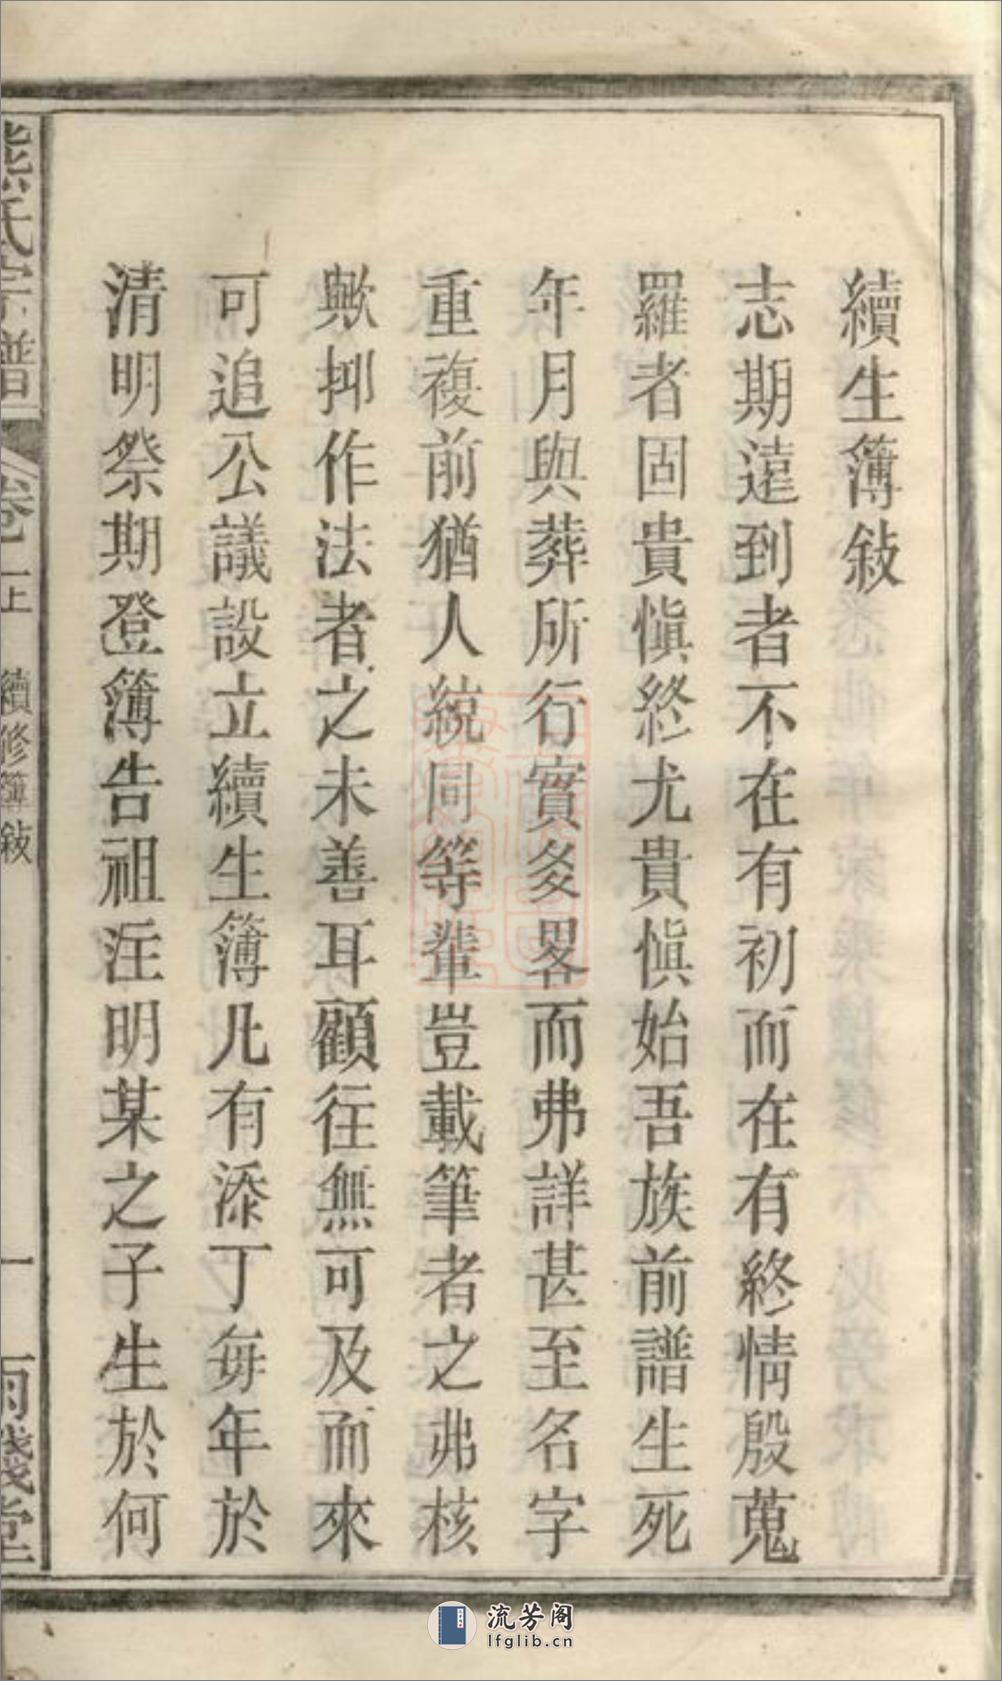 續生簿敍
志期遠到者不在有初而在有終情殷蒐
羅者固貴愼終尤貴愼始吾族前譜生死
年月與葬所行實多畧而弗詳甚至名字
重複前猶人統同等輩豈載筆者之弗核
歟抑作法者之未善耳顧往無可及而來
可追公議設立續生簿凡有添丁每年於
清明祭期登簿告祖注明某之子生於何
熊氏宗譜 卷一上 續修簿敍 一 雨錢堂
流芳阁
lfglib.cn